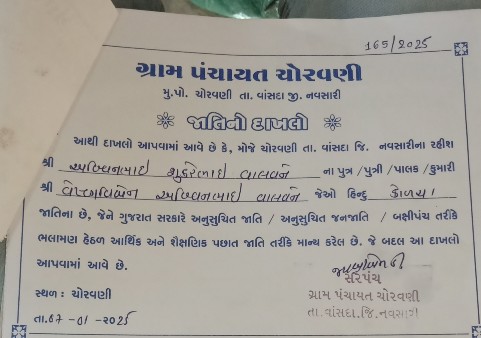 165/2025
ગ્રામ પંચાયત ચોરવણી
મુ.પો. ચોરવણી તા. વાંસદા જી. નવસારી
જાતિનો દાખલો
આથી દાખલો આપવામાં આવે છે કે, મોજે ચોરવણી તા. વાંસદા જિ. નવસારીના રહીશ
શ્રી અશ્વિનભાઈ ના પુત્ર /પુત્રી /પાલક /કુમારી
શ્રી અશ્વિનભાઈ જેઓ હિન્દુ
જાતિના છે, જેને ગુજરાત સરકારે અનુસુચિત જાતિ / અનુસુચિત જનજાતિ / બક્ષીપંચ તરીકે
ભલામણ હેઠળ આર્થિક અને શૈક્ષણિક પછાત જાતિ તરીકે માન્ય કરેલ છે. જે બદલ આ દાખલો
આપવામાં આવે છે.
સરપંચ
સ્થળ : ચોરવણી
ગ્રામ પંચાયત ચોરવણી
તા.07-01-2025
તા.વાંસદા.જિ.નવસારી